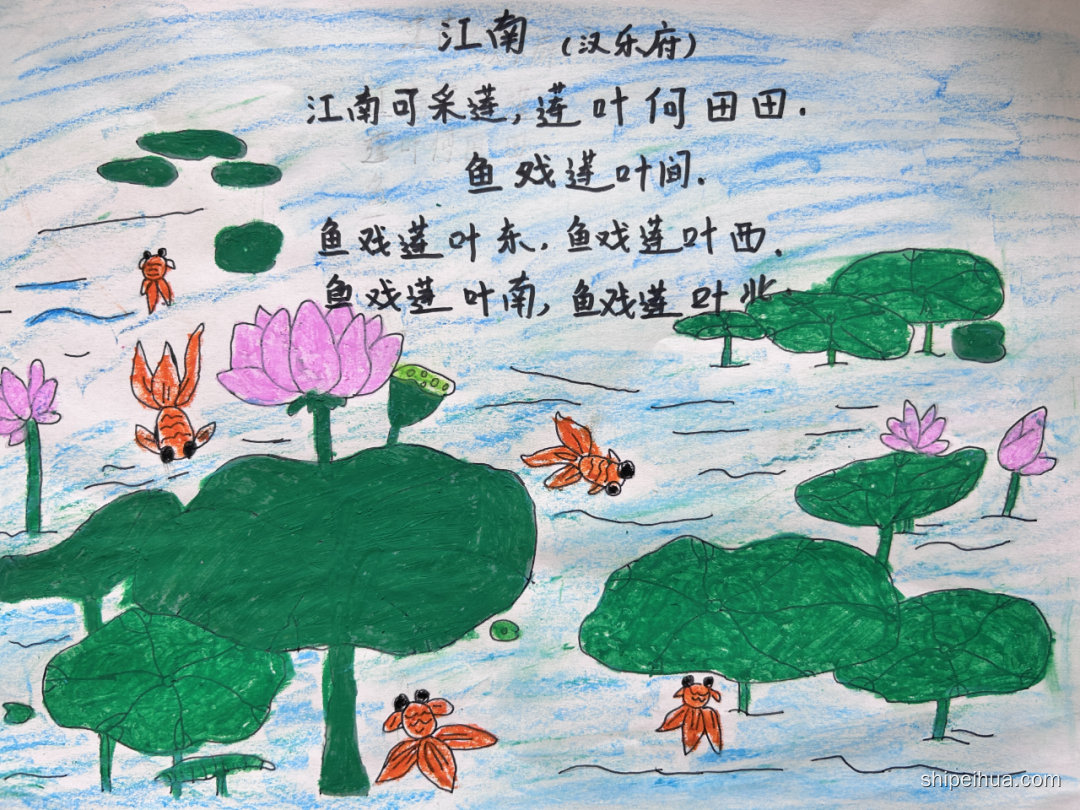 江南 (汉乐府)
江南可采莲,莲叶何田田.
鱼戏莲叶间.
鱼戏莲叶东.鱼戏莲叶西.
鱼戏莲叶南,鱼戏莲叶北.
shipeihua.com